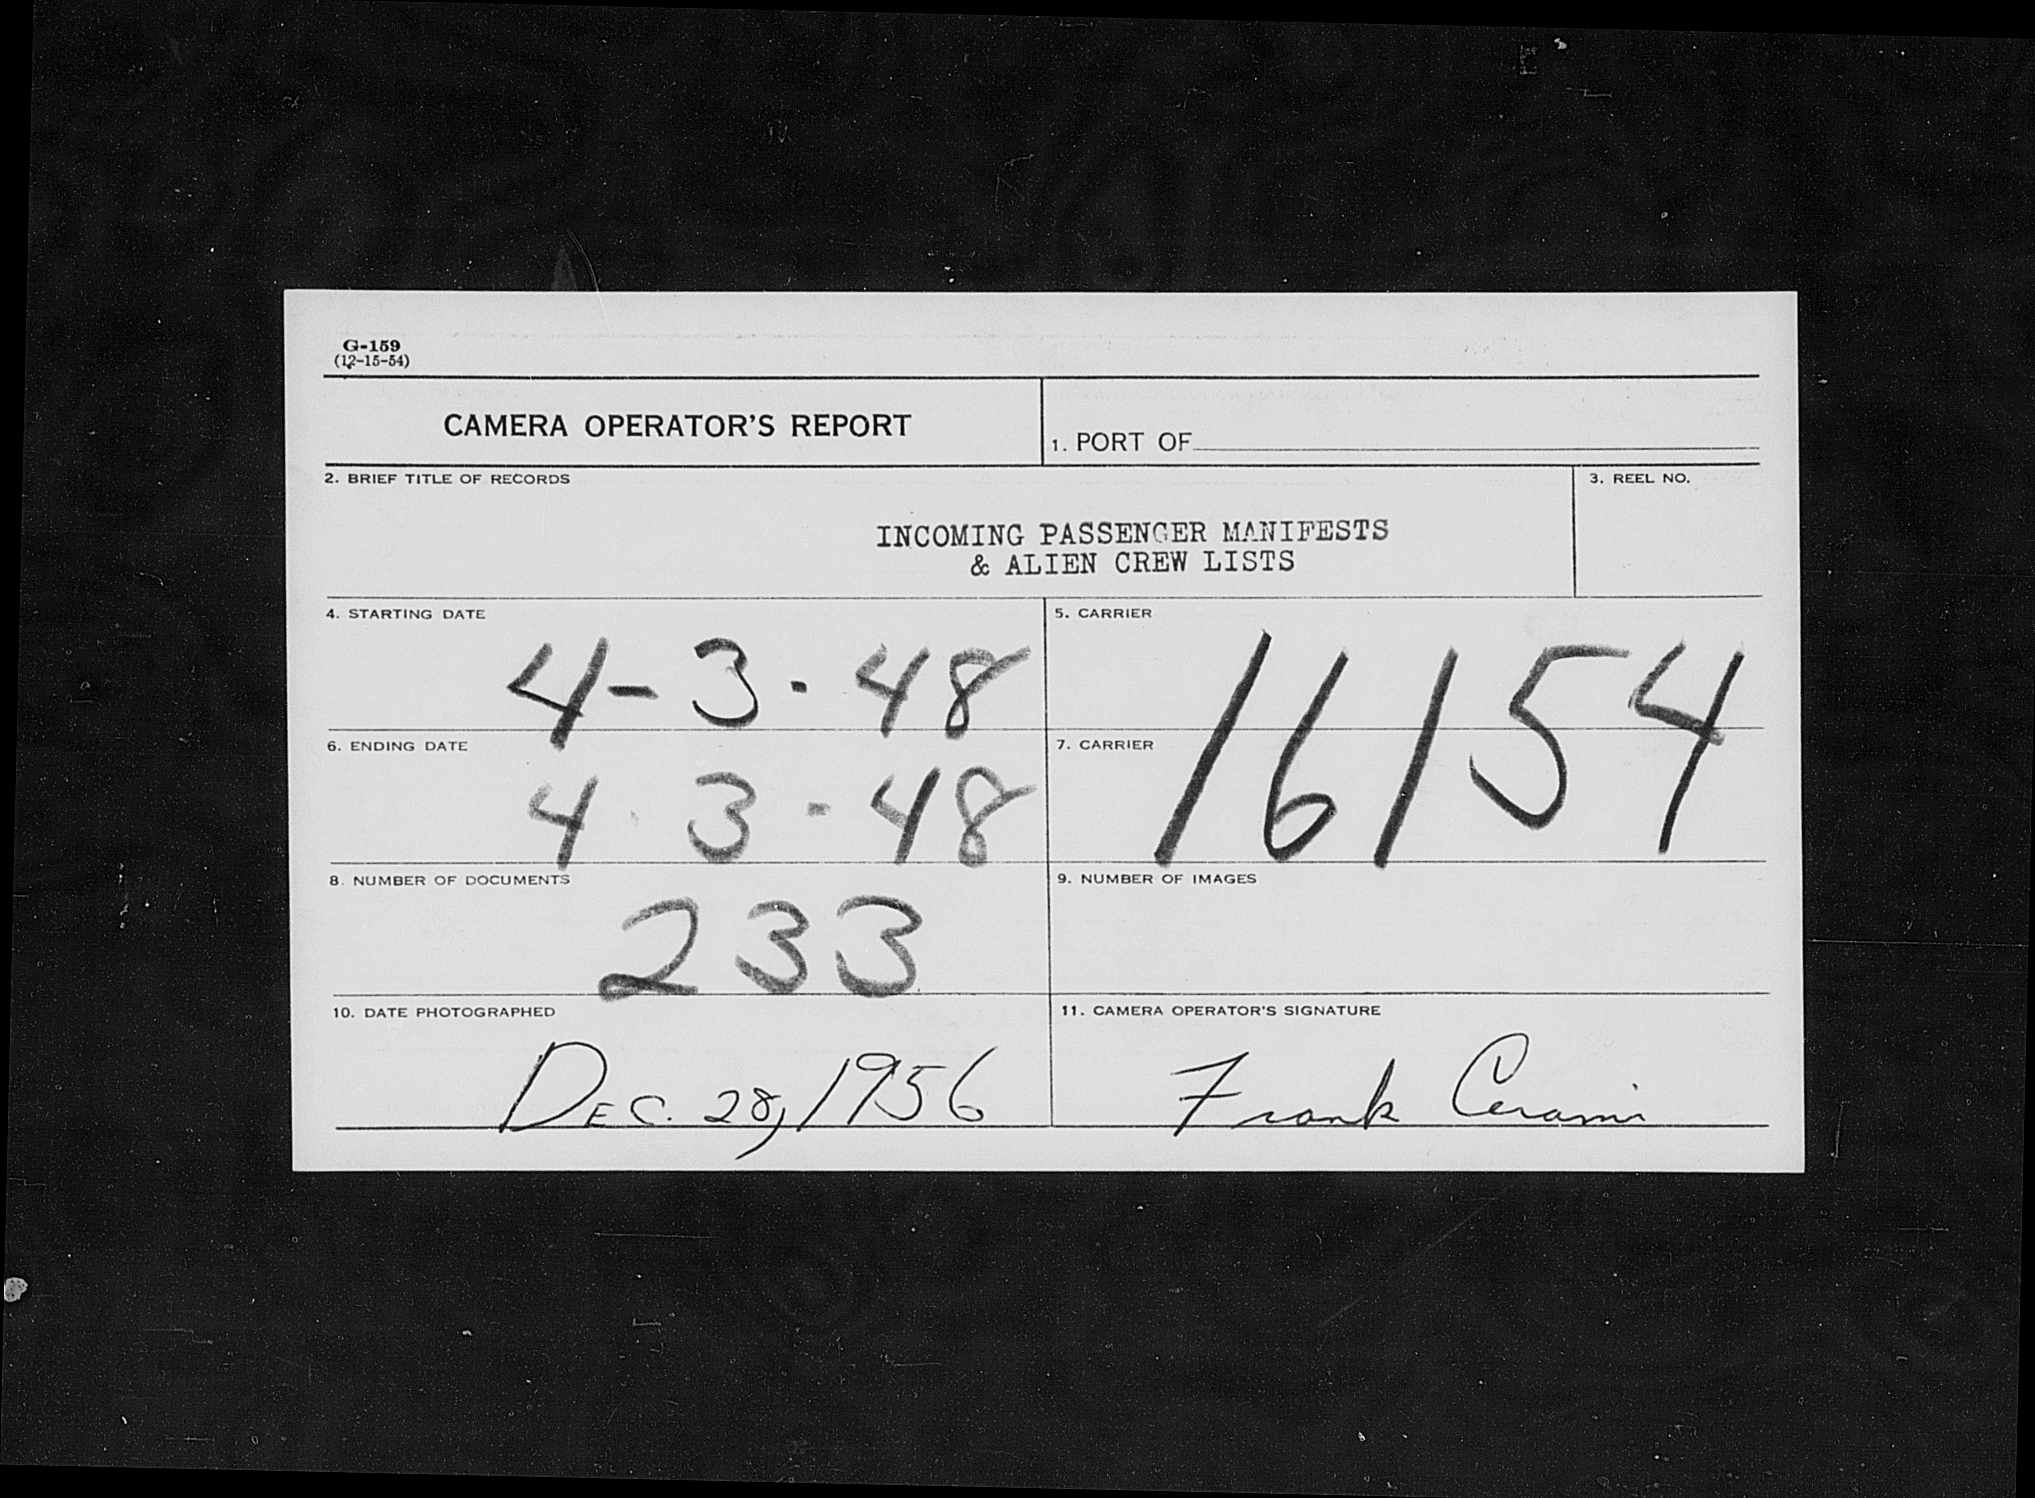 G-159
(12-15-54)
CAMERA OPERATOR'S REPORT
1. PORT OF
2. BRIEF TITLE OF RECORDS
3. REEL NO.
INCOMING PASSENGER MANIFESTS
& ALIEN CREW LISTS
4. STARTING DATE
4-3-48
5. CARRIER
16154
6. ENDING DATE
4-3-48
7. CARRIER
8. NUMBER OF DOCUMENTS
233
9. NUMBER OF IMAGES
10. DATE PHOTOGRAPHED
DEC. 28, 1956
11. CAMERA OPERATOR'S SIGNATURE
Frank Cerami